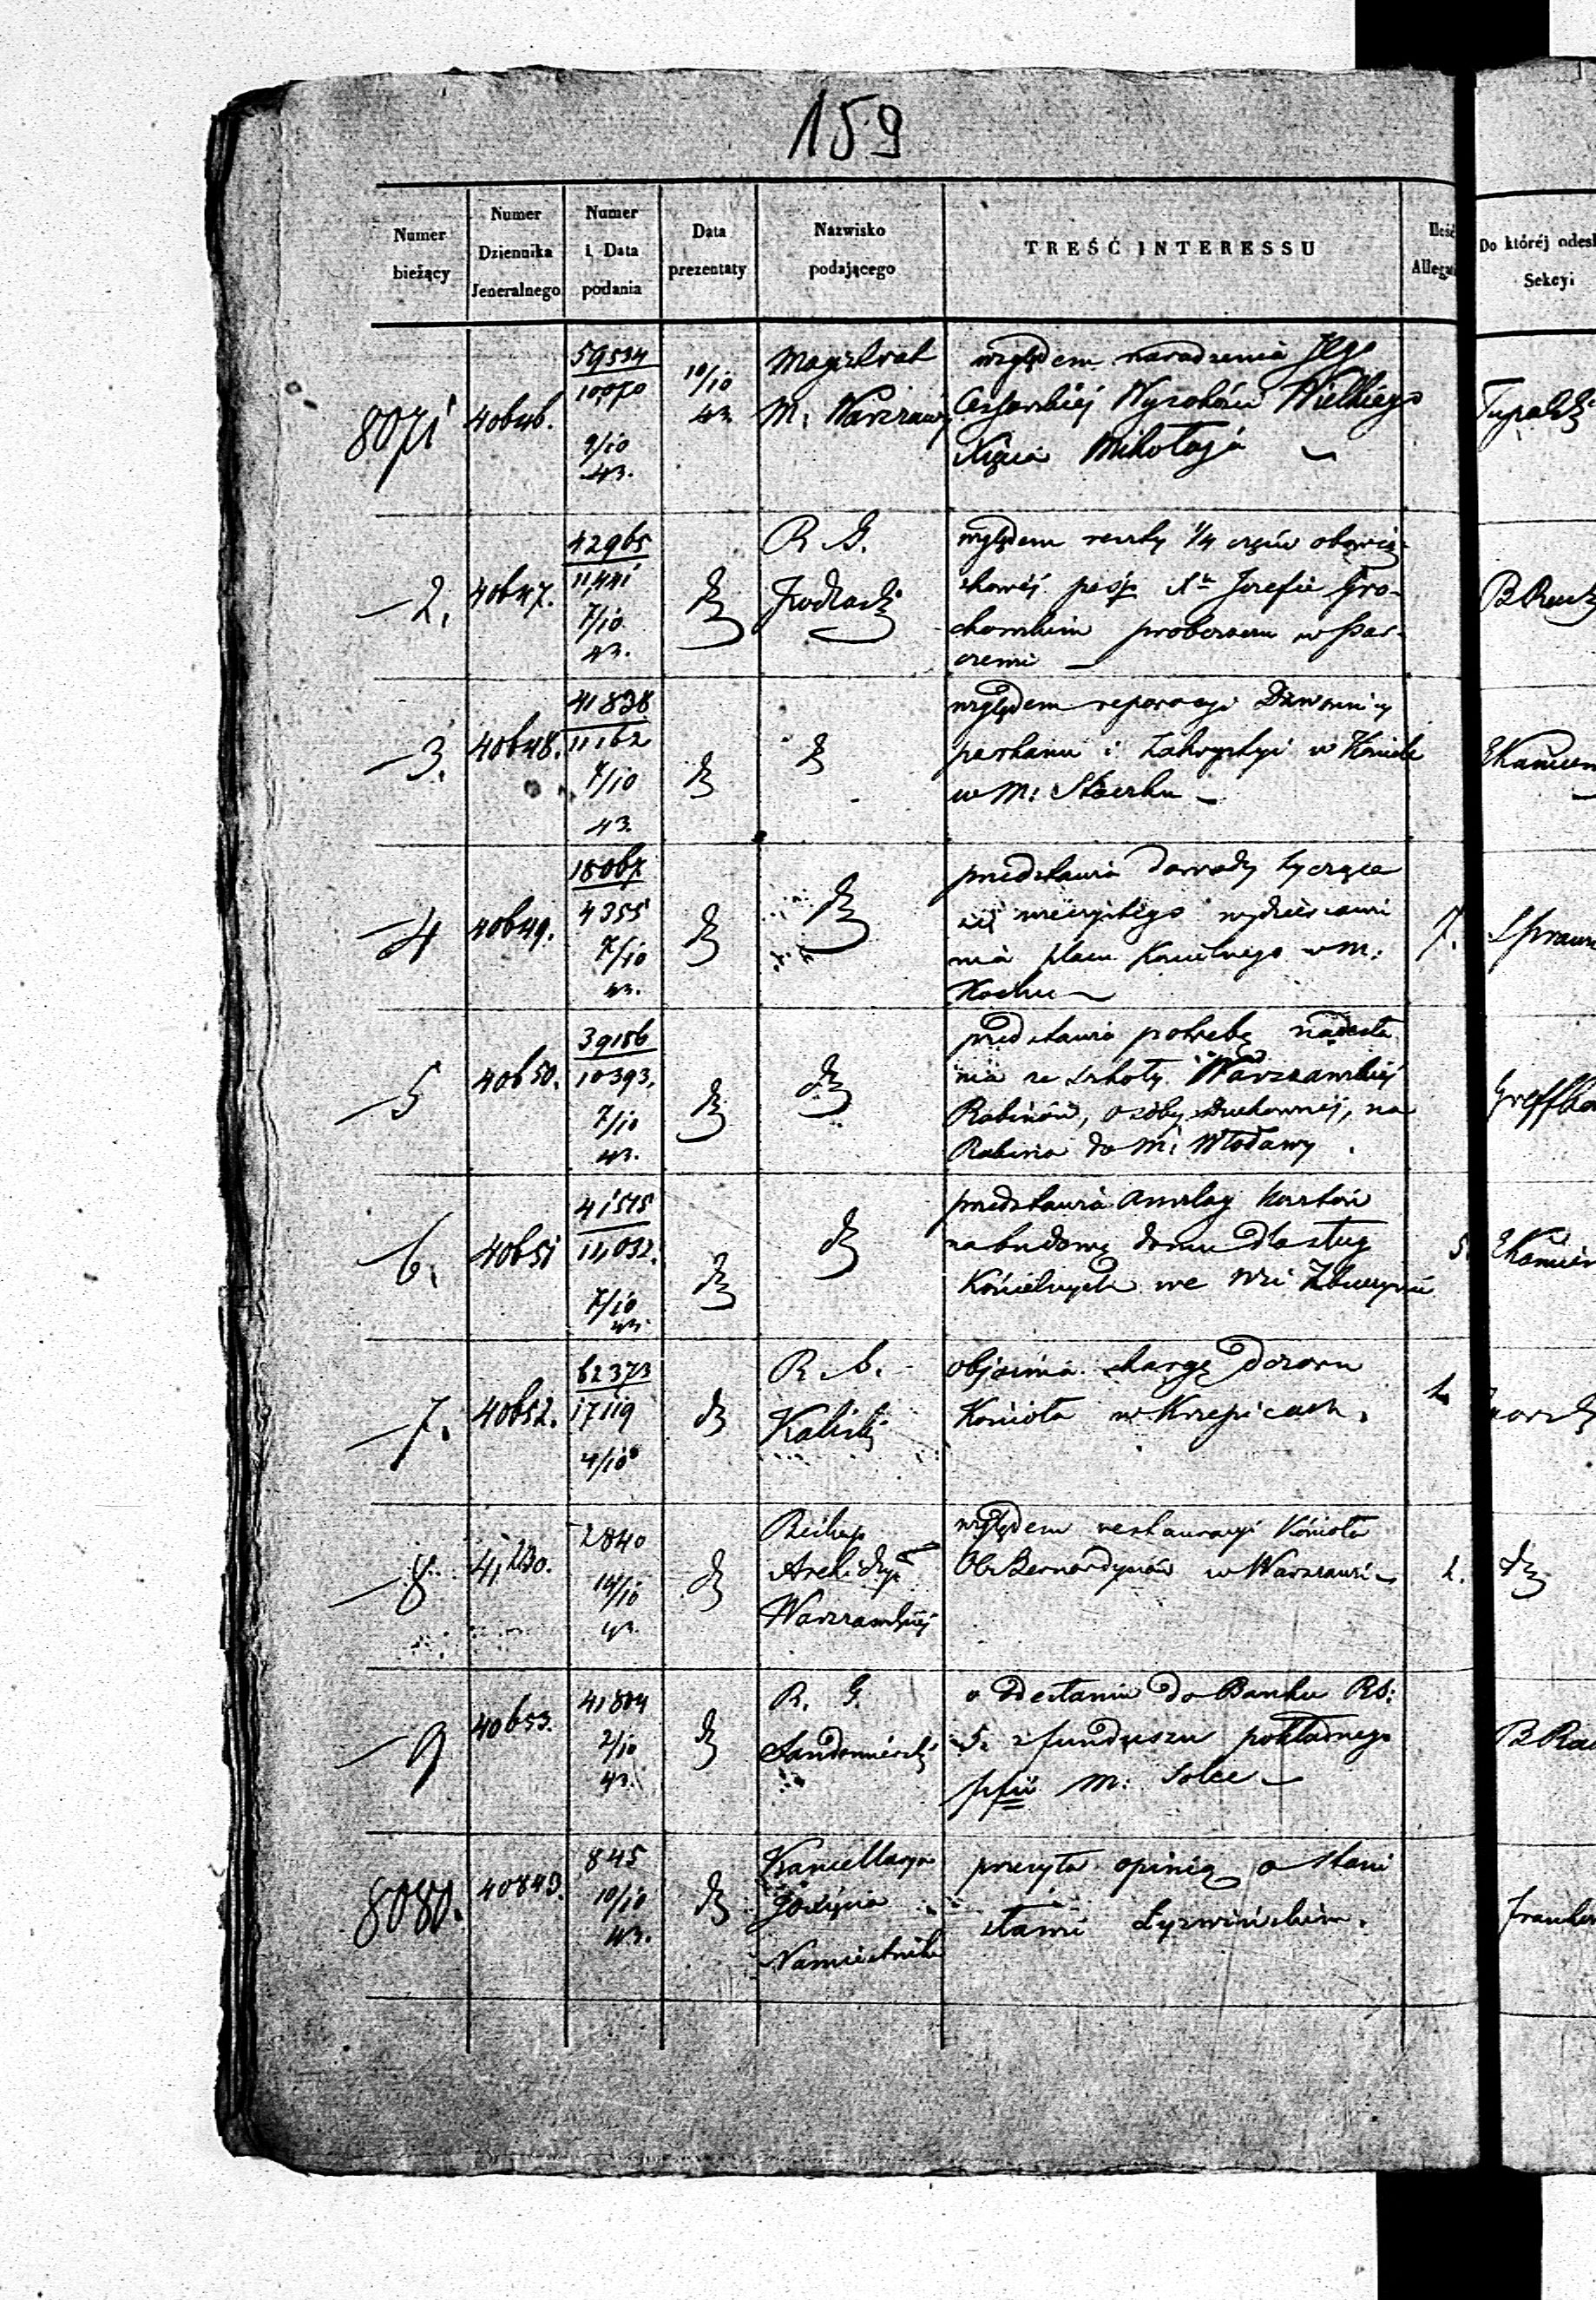 159
Numer bieżący | Numer Dziennika Jeneralnego | Numer i Data podania | Data prezentaty | Nazwisko podającego | TREŚĆ INTERESSU | Ilość Allega | Do któréj odesł Sekcyi
8071 | 40646. | 59534 / 10,070 9/10 43. | 10/10 43 | Magistrat M. Warszawy | względem narodzenia Jego
Cesarskiéj Wysokości Wielkiego
Xięcia Mikołaja | Tupalski
2. | 40647. | 42965 / 11,441 7/10 43. | dz | R. G. Podlaski | względem reszty 1/4 części obowiąz-
kowéj po śp. Xu Jozefie Gro-
chowskim proboszczu w Par-
czewi
3. | 40648. | 41838 / 11162 7/10 43. | dz | dz | względem reparacyi Dzwonnicy
parkanu i Zakrystyi w Koście
w M: Stoczku | EKamien
4 | 40649. | 18067 / 4355 7/10 43. | dz | dz | przedstawia dowody tyczące
się wieczystego wydzierżawi
nia placu Kościelnego w m.
Kocku | 7.
5 | 40650. | 39186 / 10393. 7/10 43. | dz | dz | przedstawia potrzebę nadesła
nia ze szkoły Warszawskiéj
Rabinów, osoby Duchownéj, na
Rabina do M: Włodawy.
6. | 40651 | 41515 / 11,032. 7/10 43. | dz | dz | przedstawia anszlag kosztów
na budowę domu dla sług
Kościelnych we wsi Zbuczynie | 5 | EKamien
7. | 40652. | 62373 / 17119 4/10 | dz | R. G. Kaliski | objaśnia skargę dozoru
Kościoła w Krzepicach.
8 | 41,230. | 2840 14/10 43. | dz | Biskup Archidyi Warszawskiéj | względem restauracyi Kościoła
OO. Bernardynów w Warszawie | 2. | dz
9 | 40653. | 41804 2/10 43. | dz | R. G. Sandomierski | o odesłaniu do Banku Rs:
5. z funduszu pokładnego
pfii M: Solec
8080. | 40843. | 845 10/10 43. | dz | Kancellarya JO Xięcia Namiestnika | przesyła opinią o Stani
sławie Łyzwińskim.